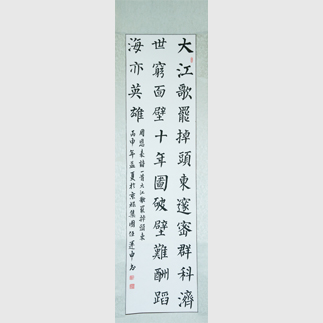 大江歌罷掉頭東邃密群科濟
世窮面壁十年圖破壁難酬蹈
海亦英雄
周恩來詩一首大江歌罷掉頭東
丙申年孟夏於京